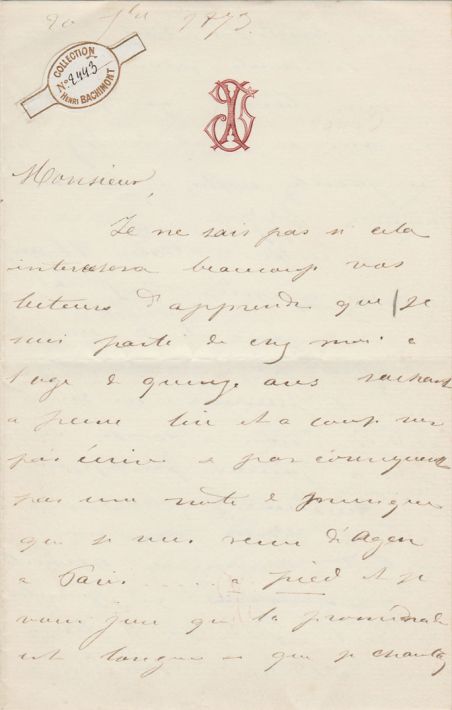 20 1873
COLLECTION
N° 2443
HENRI BACHIMONT
Monsieur,
Je ne sais pas si cela
interessera beaucoup vos
lecteurs d'apprendre que je
suis parti de chez moi a
l'age de quinze ans sachant
a peine lire et a coup sur
pas écrire & par consequent
pas une note de musique
que je suis venu d'Agen
a Paris ...... a pied et je
vous jure que la promenade
est longue & que je chantay